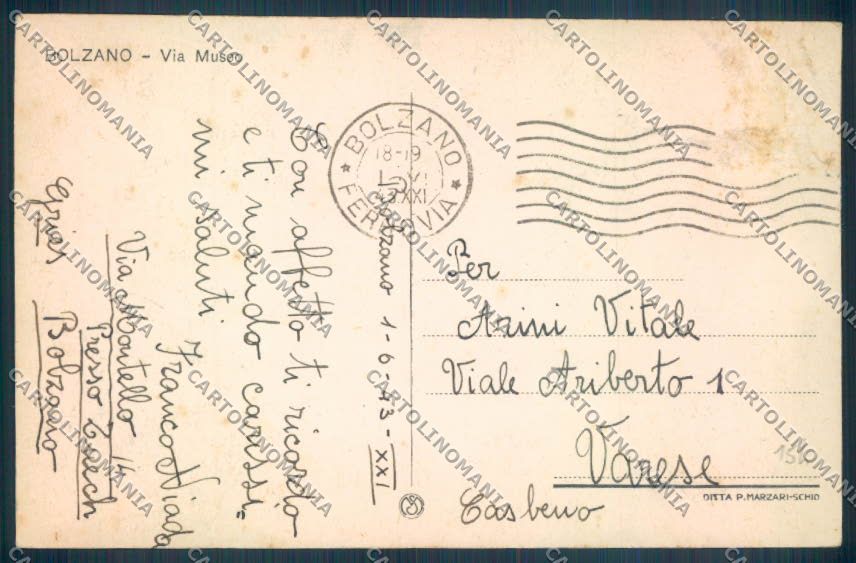 BOLZANO - Via Museo
BOLZANO
18-19
XXI
FERROVIA
Bolzano 1-6-43-XXI
Con affetto ti ricordo
e ti mando carissi=
mi saluti
Franco
Via Montello 14
Presso
Gries Bolzano
Per
Arini Vitale
Viale Ariberto 1
Varese
Casbeno
DITTA P. MARZARI-SCHIO
CARTOLINOMANIA